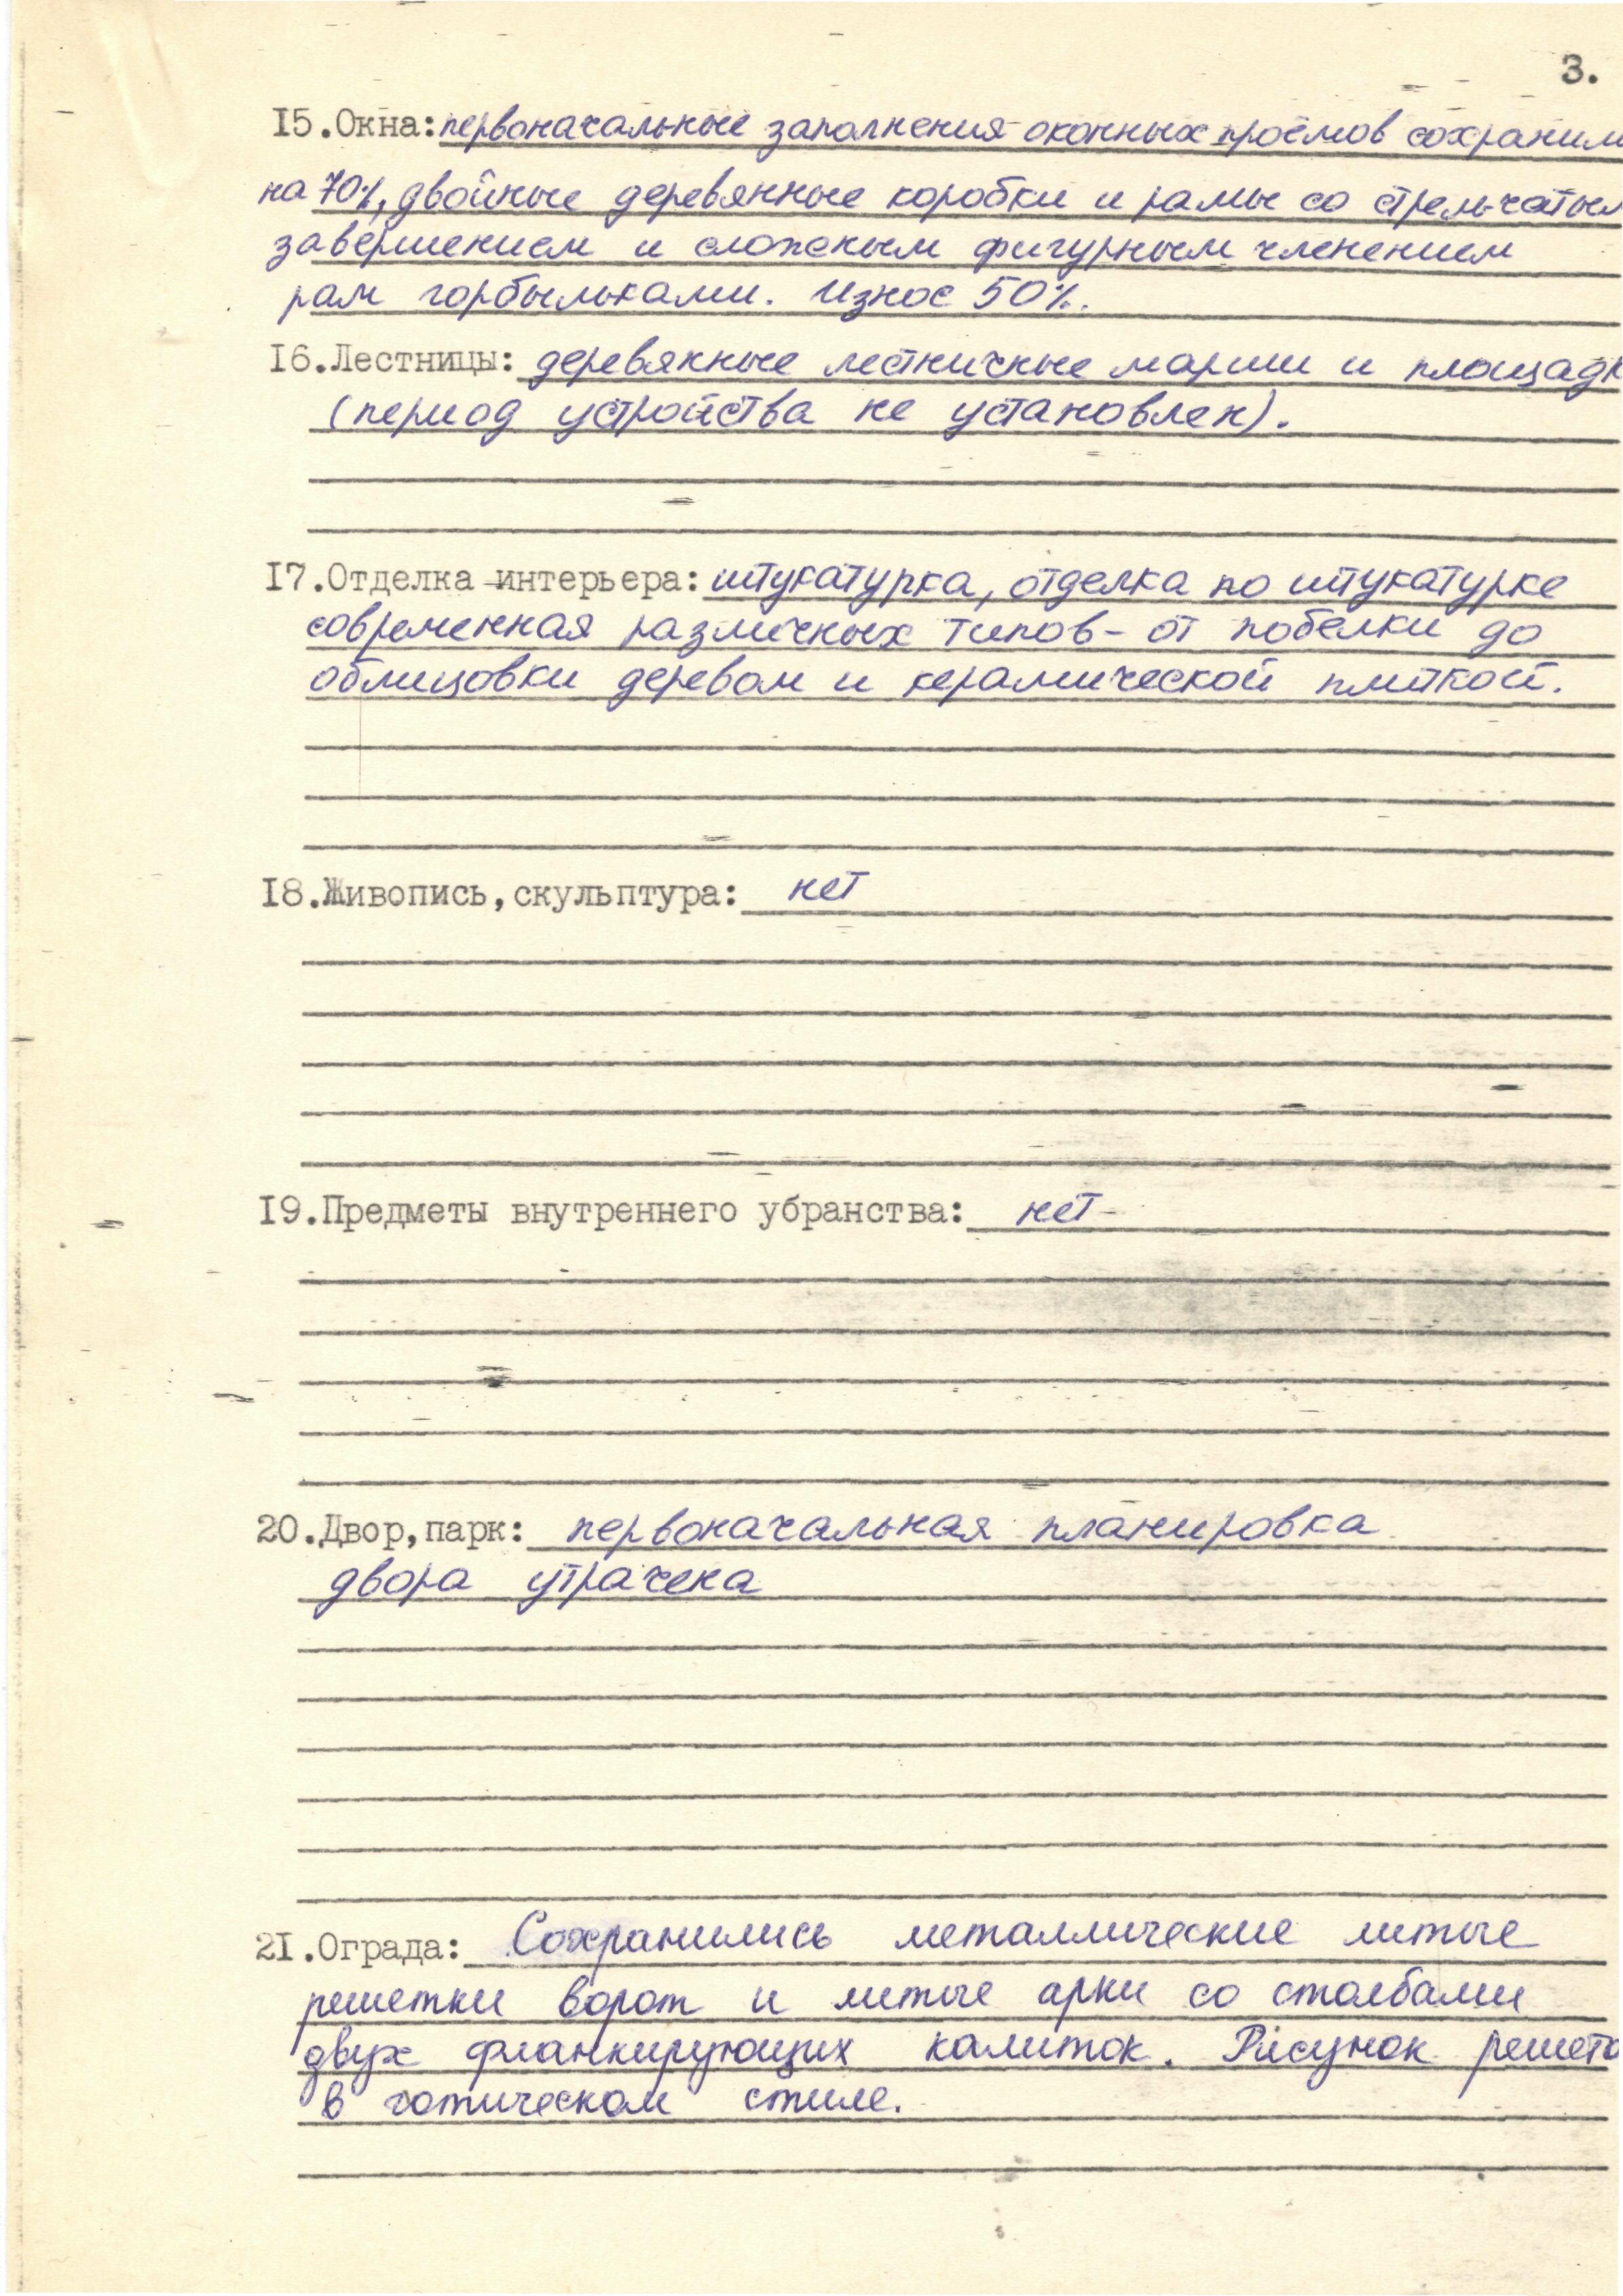 3.
15.Окна: первоначальные заполнения оконных проёмов сохранили
на 70%, двойные деревянные коробки и рамы со стрельчатым
завершением и сложным фигурным членением
рам горбыльками. Износ 50%.
16.Лестницы: деревянные лестничные марши и площадк
(период устройства не установлен).
17.Отделка интерьера: штукатурка, отделка по штукатурке
современная различных типов - от побелки до
облицовки деревом и керамической плиткой.
18.Живопись,скульптура: нет
19.Предметы внутреннего убранства: нет
20.Двор,парк: первоначальная планировка
двора утрачена
21.Ограда: Сохранились металлические литые
решетки ворот и литые арки со столбами
двух фланкирующих калиток. Рисунок решето
в готическом стиле.